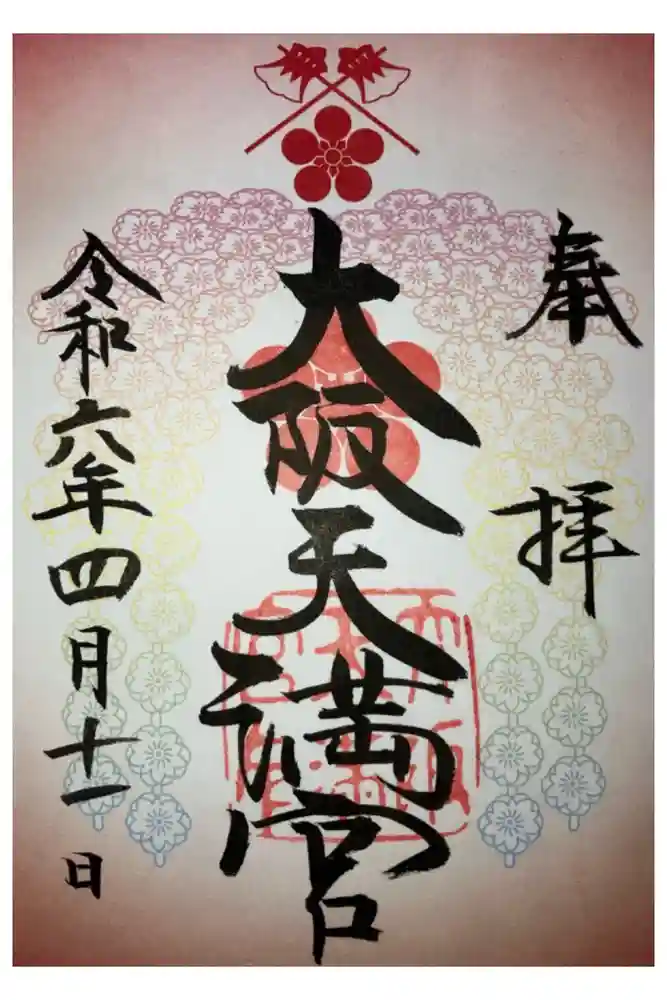 奉拝
大阪天満宮
令和六年四月十一日